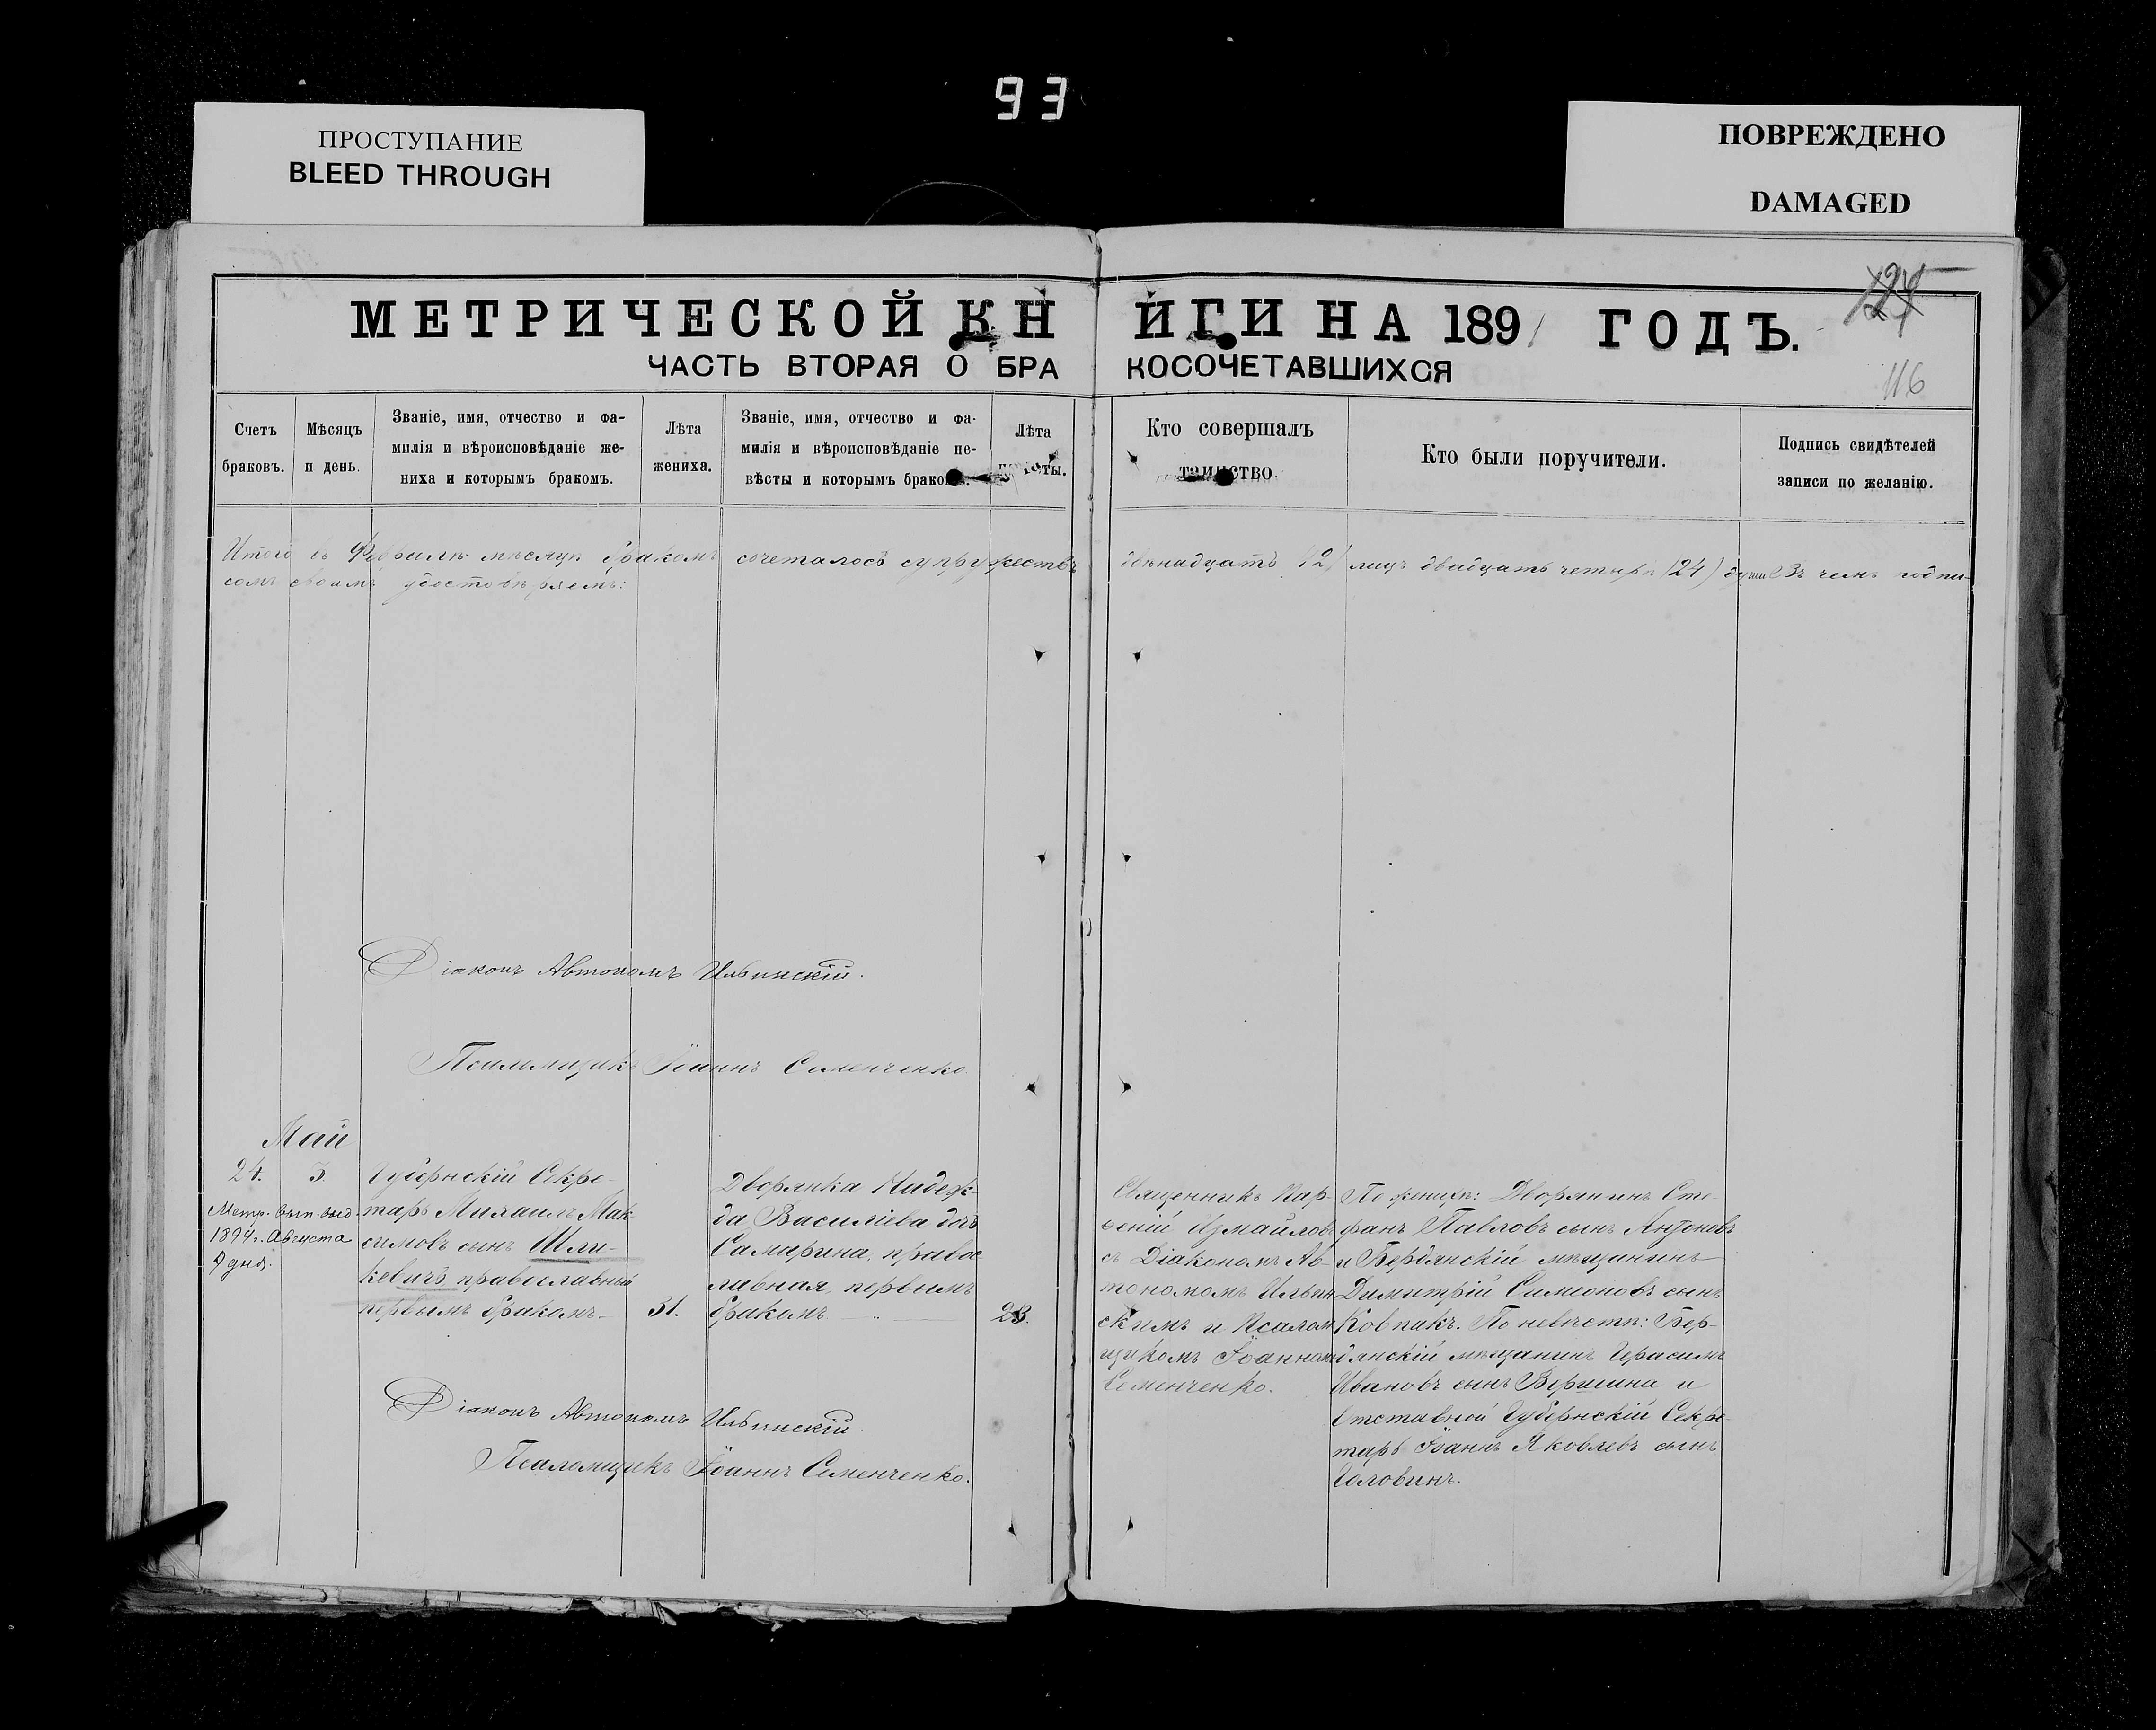 93
ПРОСТУПАНИЕ
BLEED THROUGH
ПОВРЕЖДЕНО
DAMAGED
МЕТРИЧЕСКОЙ КНИГИ НА 1891 ГОДЪ.
116
ЧАСТЬ ВТОРАЯ О БРАКОСОЧЕТАВШИХСЯ
Счетъ
браковъ.
Мѣсяцъ
и день.
Званіе, имя, отчество и фа-
милія и вѣроисповѣданіе же-
ниха и которымъ бракомъ.
Лѣта
жениха.
Званіе, имя, отчество и фа-
милія и вѣроисповѣданіе не-
вѣсты и которымъ бракомъ.
Лѣта
Кто совершалъ
таинство.
Кто были поручители.
Подпись свидѣтелей
записи по желанію.
Итого въ Февралѣ мѣсяцѣ бракомъ сочеталось супружествъ двѣнадцать 12) лицъ двадцать четыре (24) души Въ чемъ подпи-
сомъ своимъ удостовѣряемъ:
Діаконъ Автономъ Ильинскій.
Псаломщикъ Іоаннъ Семенченко.
Май
24.
3.
Метр. вып. выд.
1894 г. Августа
9 дня.
Губернскій Секре-
тарь Михаилъ Мак-
симовъ сынъ Шли-
кевичъ, православный
первымъ бракомъ.
31.
Дворянка Надеж-
да Василіева дочь
Самарина, право-
лавная, первымъ
бракомъ.
23.
Священникъ Пар-
ѳеній Измайловъ
съ Діакономъ Ав-
тономомъ Ильин
скимъ и Псалом
щикомъ Іоанномъ
Семенченко.
По женихѣ: Дворянинъ Сте-
фанъ Павловъ сынъ Антоновъ
и Бердянскій мѣщанинъ
Димитрій Симоновъ сынъ
Ковпакъ. По невѣстѣ: Бер-
дянскій мѣщанинъ Герасимъ
Ивановъ сынъ Вершина и
Отставной Губернскій Секре-
тарь Іоаннъ Яковлевъ сынъ
Головинъ.
Діаконъ Автономъ Ильинскій.
Псаломщикъ Іоаннъ Семенченко.